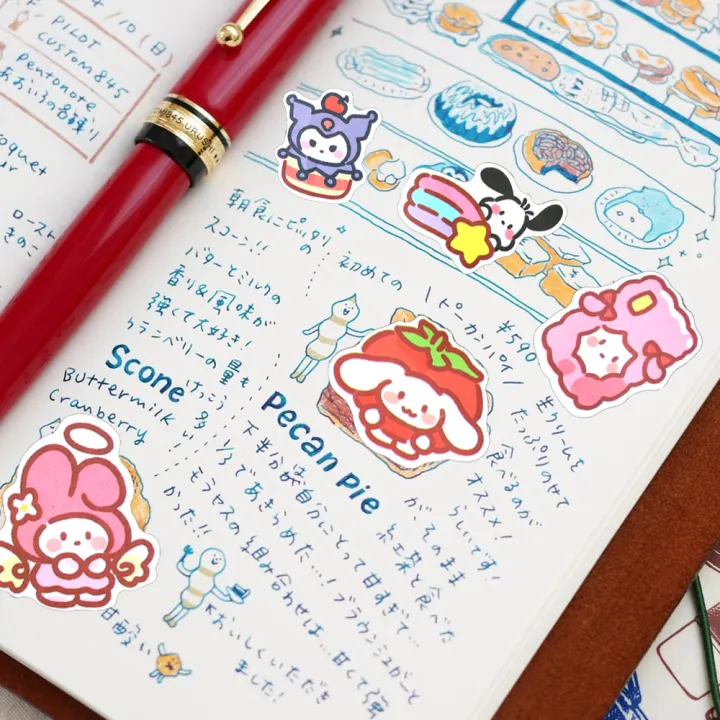 4/10(日)
PILOT
CUSTOM845
Pentonote
oquet
ロースト
きのこ
845.URUSHI
朝食にピッタリの
スコーン!!
バターとミルクの
香り&風味が
強くて大好き!
クランベリーの量も
けっこう多い
Scone
Buttermilk
Cranberry
初めての
ピーカンパイ
¥590
Pecan Pie
生クリームを
たっぷりのせて
食べるのが
オススメ!
らしいです!
が、そのまま
紅茶と食べた
下半分は自分にとって甘すぎて…
1/3であきらめた…! ブラウンシュガーと
モラセスの組み合わせは…甘くて強
かった!!
おいしくいただき
ました!